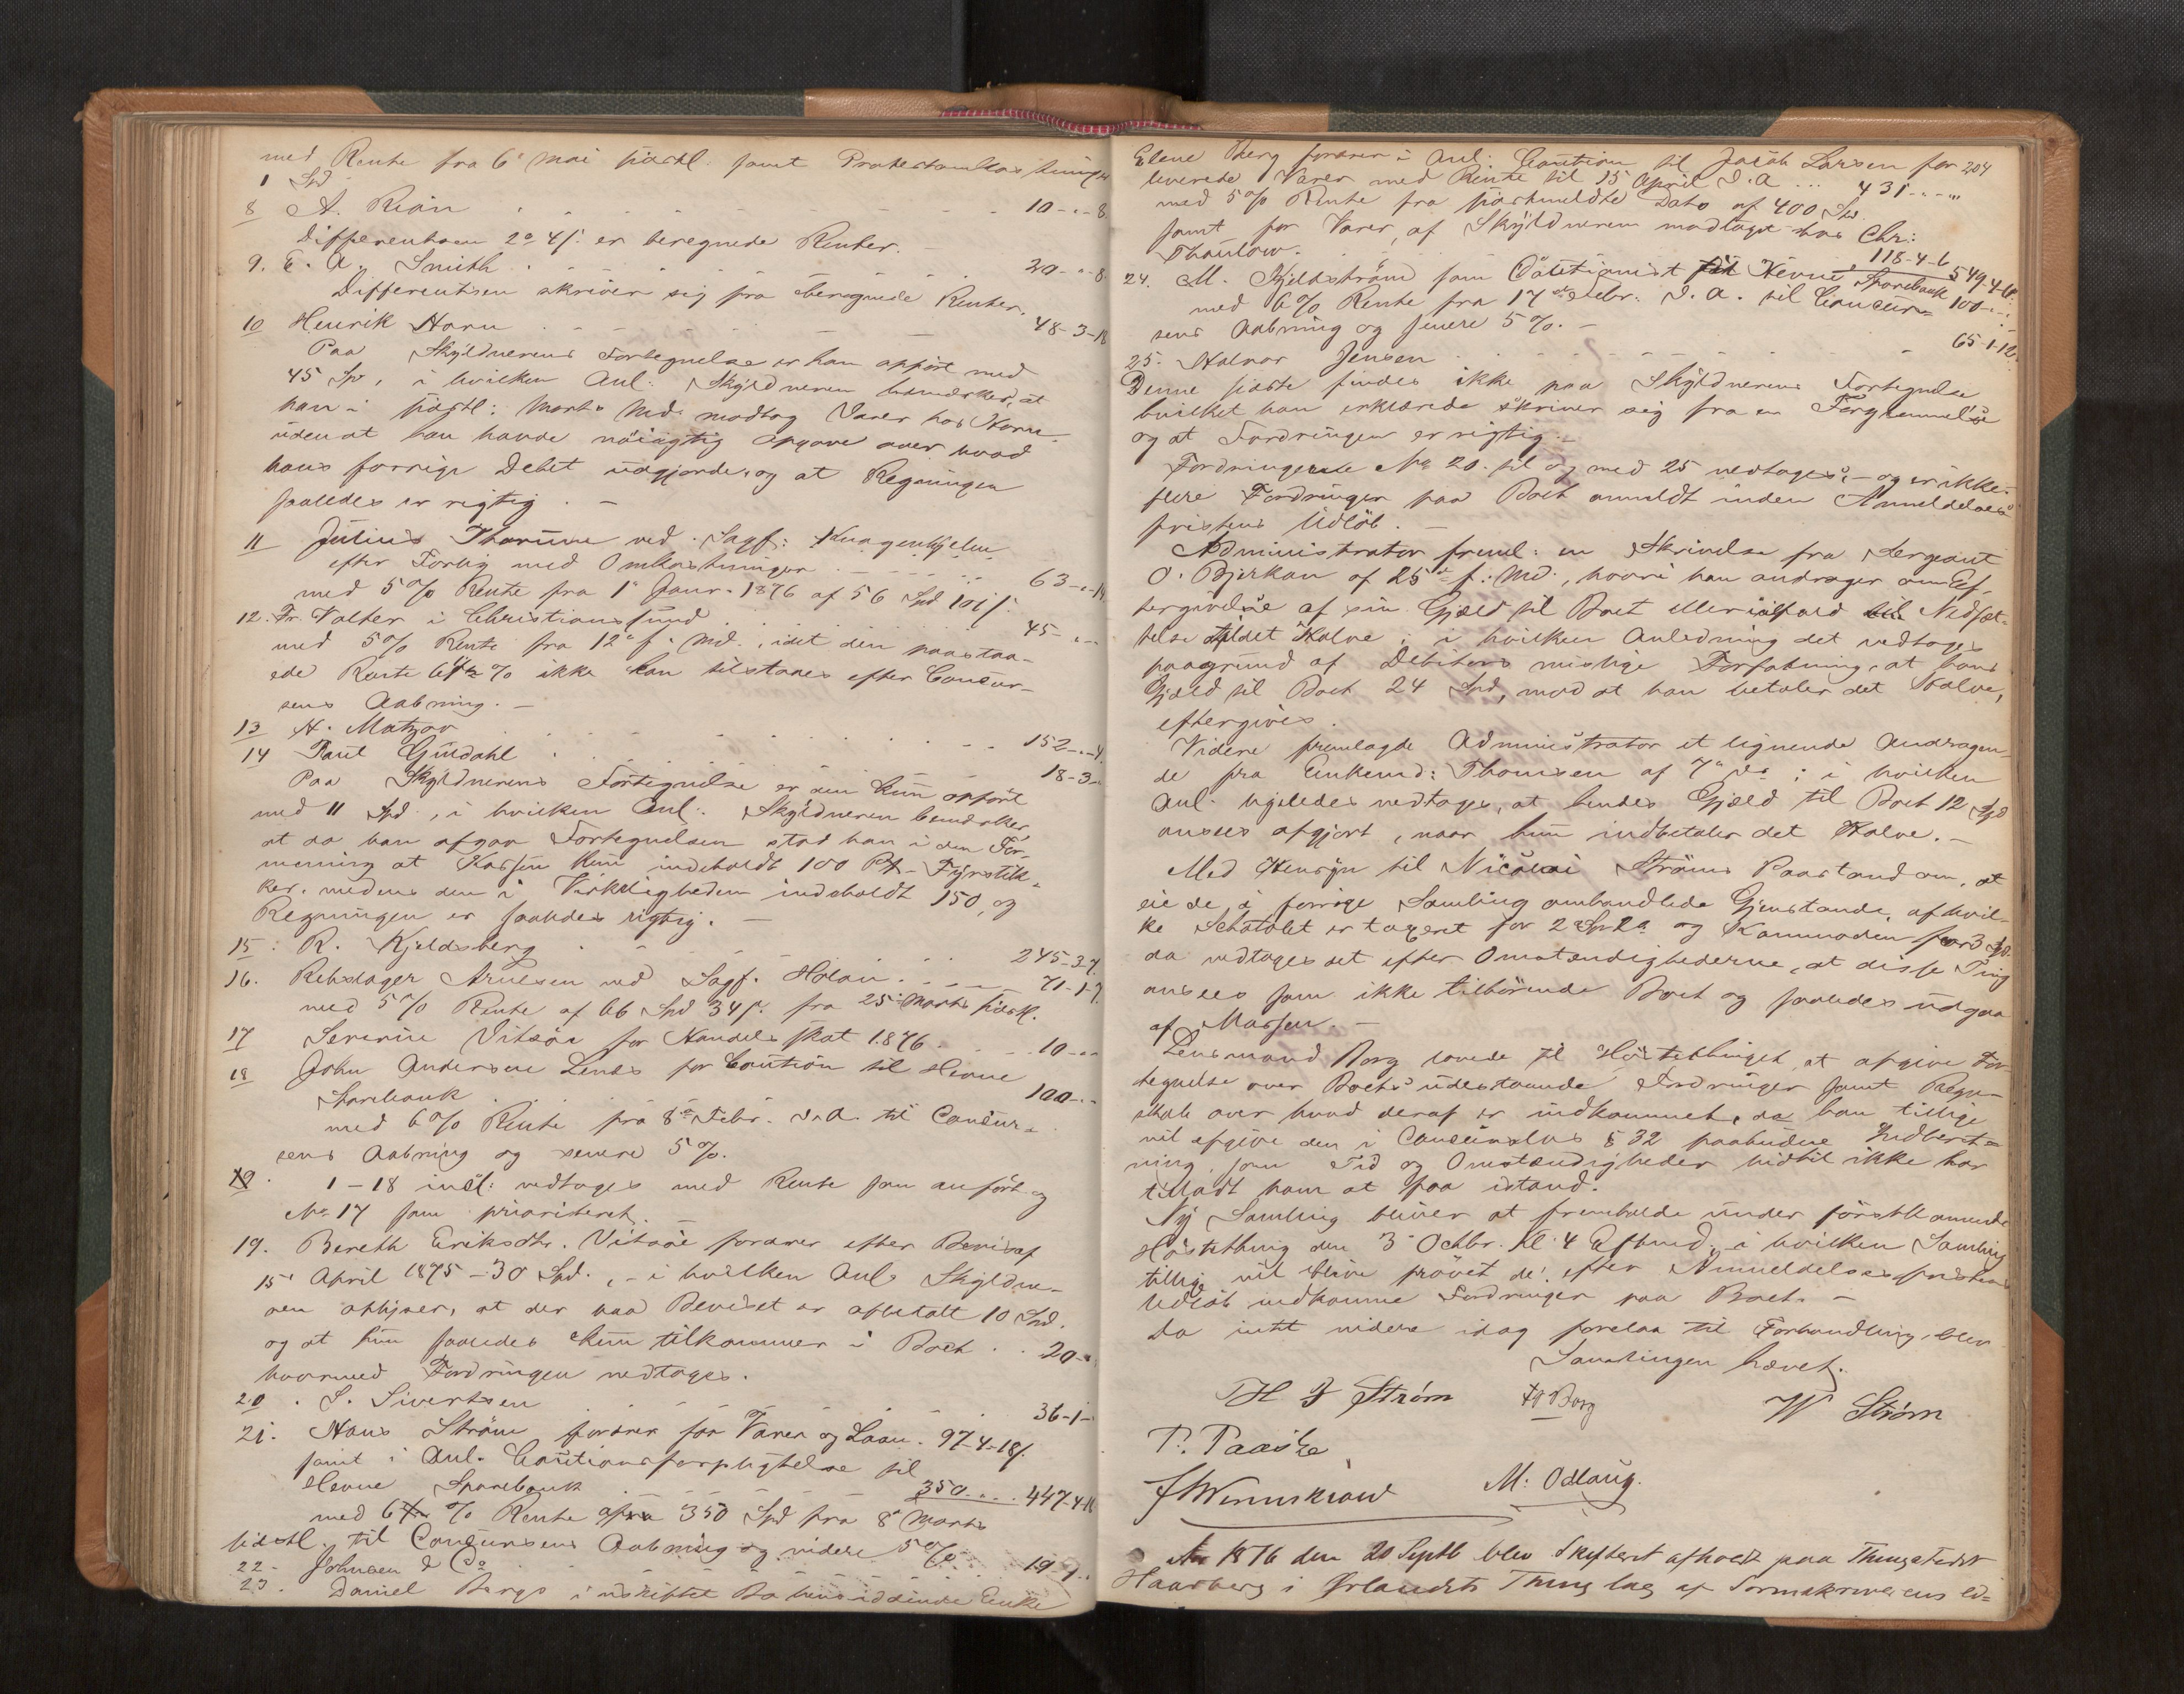 med Rente fra 6' Mai sidstl. samt Protestomkostninger
1 Spd
8 A. Rian . . . . 10 - " - 8
Differentsen 2 o 4 s. er beregnede Renter. -
9. E. A. Smith . . . . 20 - " - 8
Differentsen skriver sig fra beregnede Renter.
10 Henrik Horn . . . . 48 - 3 - 18
Paa Skyldnerens Fortegnelse er han opført med
45 Spd, i hvilken Anl: Skyldneren bemærked, at
han i sidstl: Marts Md. modtog Varer hos Horn
uden at han havde nøiagtig Opgave over hvad
hans forrige Debet udgjorde, og at Regningen
saaledes er rigtig. -
11 Julius Thorume ved Sagf: Knagenhjelm
efter Forlig med Omkostninger . . . . 63 - " - 14
med 5 % Rente fra 1' Janr. 1876 af 56 Spd 101 s.
12. Fr. Valter i Christianssund . . . . 45 - " -
med 5 % Rente fra 12' f. Md., idet den paastaa-
ede Rente 6 % ikke kan tilstaaes efter Concur-
sens Aabning. -
13 H. Matzow . . . . 152 - " - 4
14 Paul Guldahl . . . . 18 - 3 -
Paa Skyldnerens Fortegnelse er den kun opført
med 11 Spd., i hvilken Anl. Skyldneren bemærker
at da han afgav Fortegnelsen stod han i den For-
mening at Kassen kun indeholdt 100 Pk. Fyrstik-
ker, medens den i Virkeligheden indeholdt 150, og
Regningen er saaledes rigtig. -
15. R. Kjeldsberg . . . . 245 - 3 - 7.
16. Rebslager Arnesen ved Sagf. Holan . . . 71 - 1 - 9.
med 5 % Rente af 66 Spd 34 s. fra 25' Marts sidstl.
17 Severine Vitsøe for Handelsskat 1876 . . . 10 - "
18 John Andersen Lenes for Caution til Hevne
Sparebank . . . . 100 - "
med 6 % Rente fra 8' Febr. d. A. til Concur-
sens Aabning og senere 5 %.
1 - 18 incl: vedtoges med Rente som anført og
No 17 som prioriteret. -
19. Bereth Eriksdtr. Vitsøe fordrer efter Bevis af
15' April 1875 - 30 Spd., - i hvilken Anl. Skyldne-
ren oplyser, at der paa Beviset er afbetalt 10 Spd.
og at hun saaledes kun tilkommer i Boet . . 20 - "
hvormed Fordringen vedtoges.
20. S. Sivertsen . . . . 36 - 1 -
21. Hans Strøm fordrer for Varer og Laan. 97 - 4 - 18 s.
samt i Anl. Cautionsforpligtelse til
Hevne Sparebank . . . 350 . . . 447 - 4 - 18
med 6 % Rente af 350 Spd fra 8' Marts
sidstl. til Concursens Aabning og videre 5 %
22. Johnsen & Co . . . . 19
23. Daniel Bergs i uskiftet Bo hensiddende Enke
204
Elene Berg fordrer i Anl. Caution til Jacob Larsen for
leverede Varer med Rente til 15 April d. A . . . 431 - " - "
med 5 % Rente fra sidstmeldte Dato af 400 Spd.
samt for Varer, af Skyldneren modtaget hos Chr:
Thaulow . . . . 118 - 4 - 6 549 - 4 - 6
24. M. Kjeldstrøm som Cautionist Hevne Sparebank 100 - " -
med 6 % Rente fra 17' Febr. d. A. til Concur-
sens Aabning og senere 5 %. -
25. Halvor Jensen . . . . 65 - 1 - 12
Denne sidste findes ikke paa Skyldnerens Fortegnelse
hvilket han erklærede skriver sig fra en Forglemmelse
og at Fordringen er rigtig. -
Fordringerne No 20 til og med 25 vedtoges, - og er ikke
flere Fordringer paa Boet anmeldt inden Anmeldelses-
fristens Udløb. -
Administrator freml: en Skrivelse fra Sergeant
O. Bjerkan af 25' f. Md., hvori han andrager om Ef-
tergivelse af sin Gjæld til Boet eller ialfald Nedsæt-
telse til det Halve; i hvilken Anledning det vedtoges
paagrund af Debitors mislige Forfatning, at hans
Gjæld til Boet 24 Spd, mod at han betaler det Halve,
eftergives.
Videre fremlagde Administrator et lignende Andragen-
de fra Enkemd: Thomsen af 7' ds; i hvilken
Anl. ligeledes vedtoges, at hendes Gjæld til Boet 12 Spd
ansees afgjort, naar hun indbetaler det Halve. -
Med Hensyn til Nicolai Strøms Paastand om, at
eie de, i forrige Samling omhandlede Gjenstande, af hvil-
ke Schatolet er taxeret for 2 Spd 2 o og Kommoden for 3 Spd.
da vedtoges det efter Omstændighederne, at disse Ting
ansees som ikke tilhørende Boet og saaledes udgaa
af Massen. -
Lensmand Borg lovede til Høstthinget at afgive For-
tegnelse over Boets udestaaende Fordringer samt Regn-
skab over hvad deraf er indkommet, da han tillige
vil afgive den i Concursloves § 32 paabudne Indberet-
ning, som Tid og Omstændigheder hidtil ikke har
tilladt ham at faa istand.
Ny Samling bliver at fremholde under førstkommende
Høstthing den 3' Octbr. Kl. 4 Eftmd., i hvilken Samling
tillige vil blive prøvet de, efter Anmeldelsesfristens
Udløb indkomne Fordringer paa Boet. -
Da intet videre idag forelaa til Forhandling, blev
Samlingen hævet.
H J Strøm Borg W Strøm
P. Paaske
M. Odlaug.
Ar 1876 den 20 Septb blev Skifteret afholdt paa Thingstedet
Haarberg i Ørlandets Thinglag af Sorenskriverens ed=